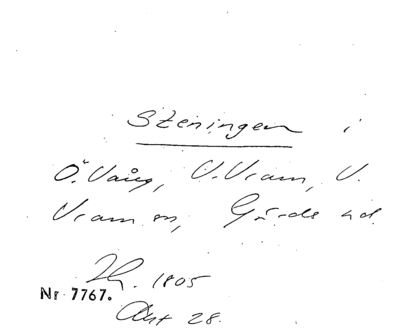 Steningen i
Ö. Vång, V. Vram, V.
Vram sn, Gärds hd.
1805
Nr 7767.
Akt 28.